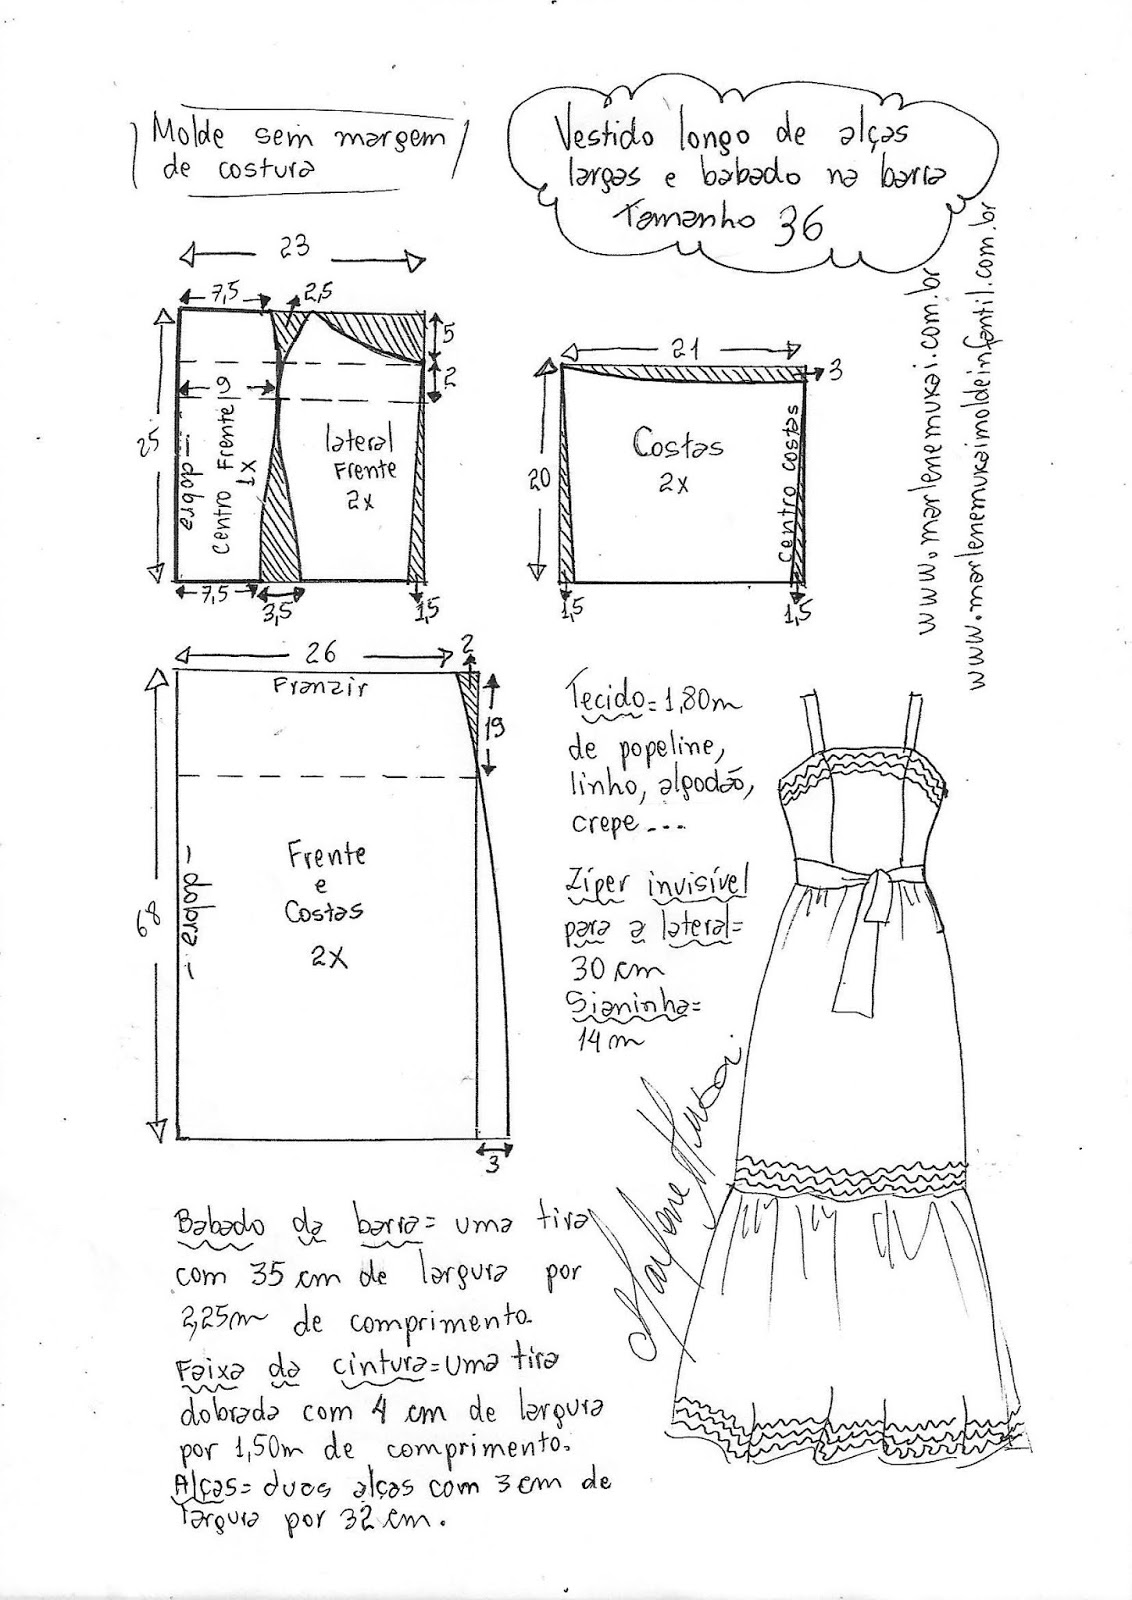 Molde sem margem
de costura
Vestido longo de alças
largas e babado na barra
Tamanho 36
www.marlenemukai.com.br
www.marlenemukaimoldeinfantil.com.br
23
7,5
2,5
5
2
9
25
dobra
Centro Frente
1x
lateral
Frente
2x
7,5
3,5
1,5
21
3
20
Costas
2x
Centro costas
1,5
1,5
26
2
Franzir
19
68
dobra
Frente
e
Costas
2X
3
Tecido= 1,80m
de popeline,
linho, algodão,
crepe...
Zíper invisível
para a lateral=
30 cm
Sianinha=
14 m
Babado da barra= uma tira
com 35 cm de largura por
2,25m de comprimento.
Faixa da cintura= uma tira
dobrada com 4 cm de largura
por 1,50m de comprimento.
Alças= duas alças com 3 cm de
largura por 32 cm.